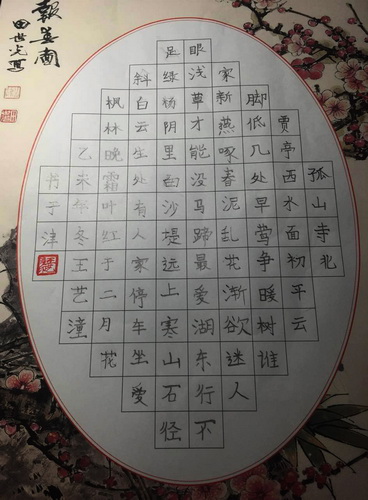 田世光寫
孤山寺北
贾亭西水面初平云
脚低几处早莺争暖树谁
家新燕啄春泥乱花渐欲迷人
眼浅草才能没马蹄最爱湖东行不
足绿杨阴里白沙堤远上寒山石径
斜白云生处有人家停车坐爱
枫林晚霜叶红于二月花
乙未年冬王艺潼
书于津